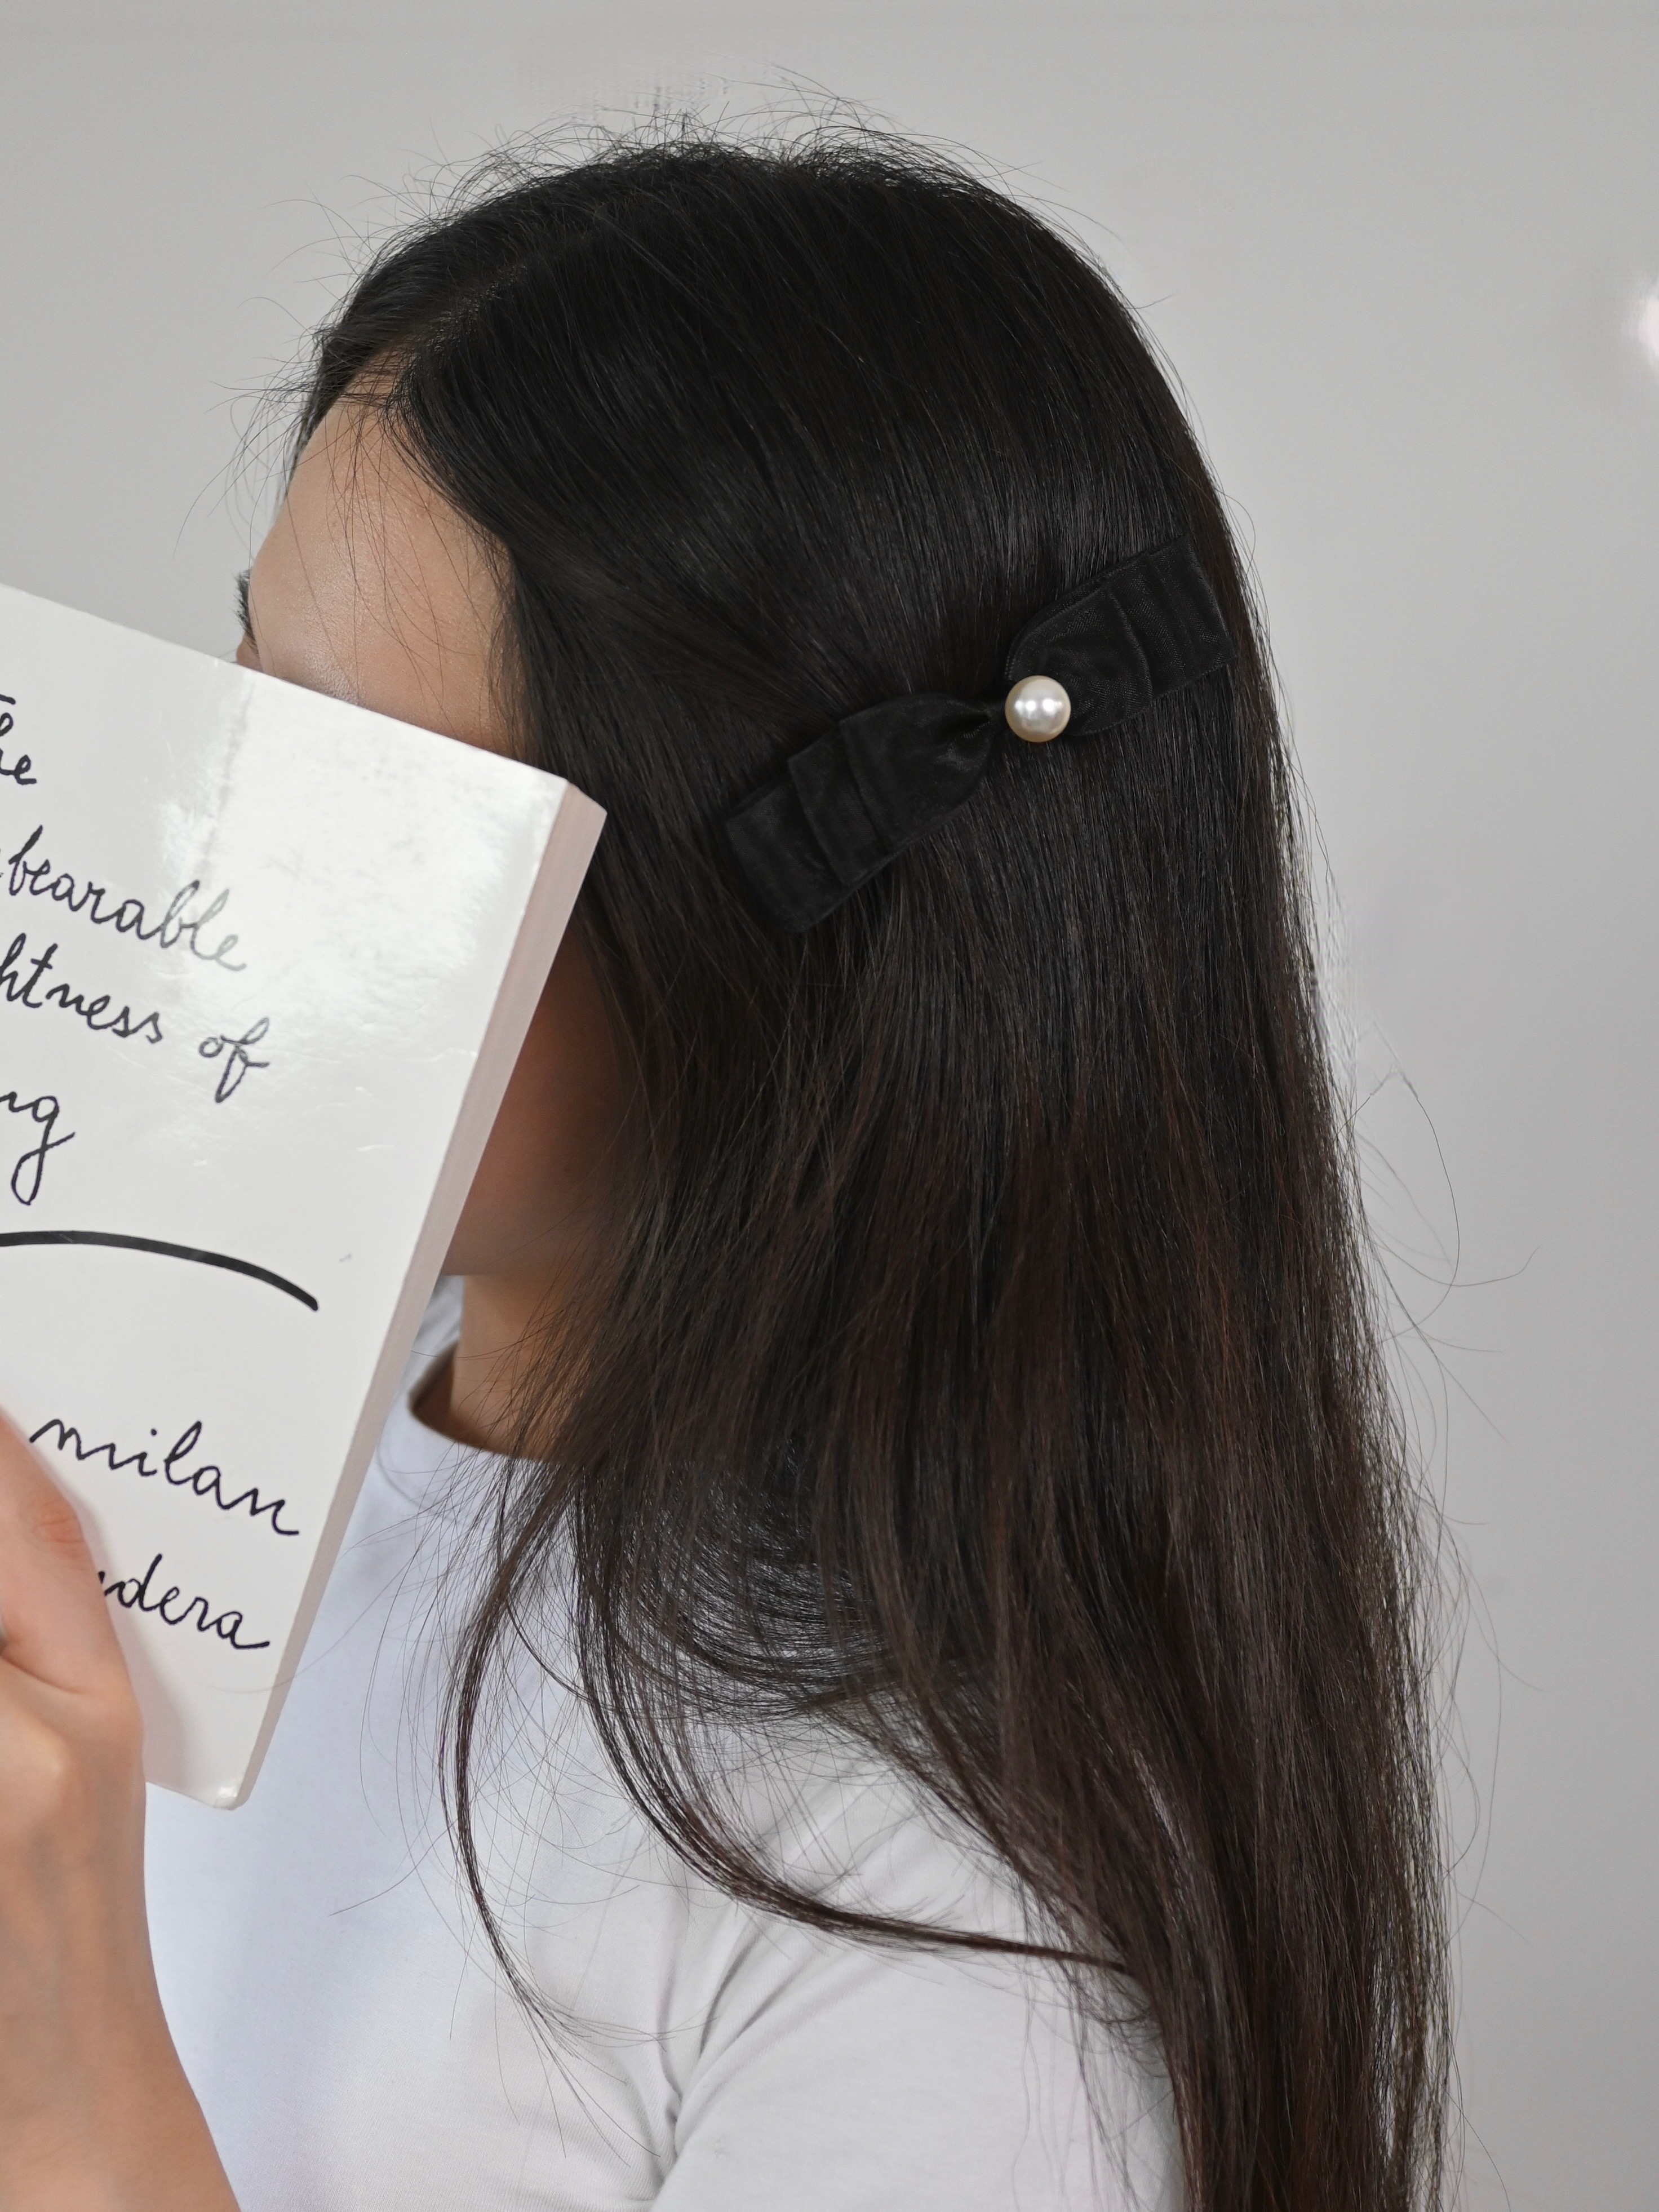 he
bearable
htness of
ng
milan
dera